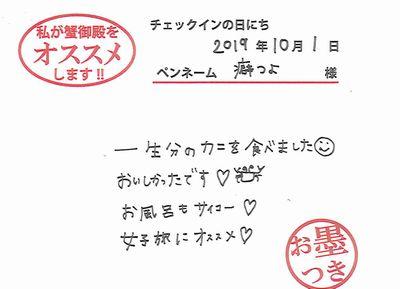 私が蟹御殿を
オススメ
します!!
チェックインの日にち
2019年10月1日
ペンネーム 癖つよ 様
一生分のカニを食べました
おいしかったです♡
お風呂もサイコー♡
女子旅にオススメ♡
お墨
つき